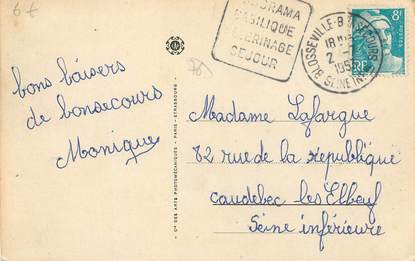 6 f
PANORAMA
BASILIQUE
PELERINAGE
SEJOUR
BLOSSEVILLE-BONSECOURS
18H
2 -
195
SEINE INF
8F
POSTES
RF
bons baisers
de bonsecours
Monique
Madame Lafargue
82 rue de la republique
caudebec les Elbeuf
Seine inférieure
Cie DES ARTS PHOTOMÉCANIQUES - PARIS - STRASBOURG